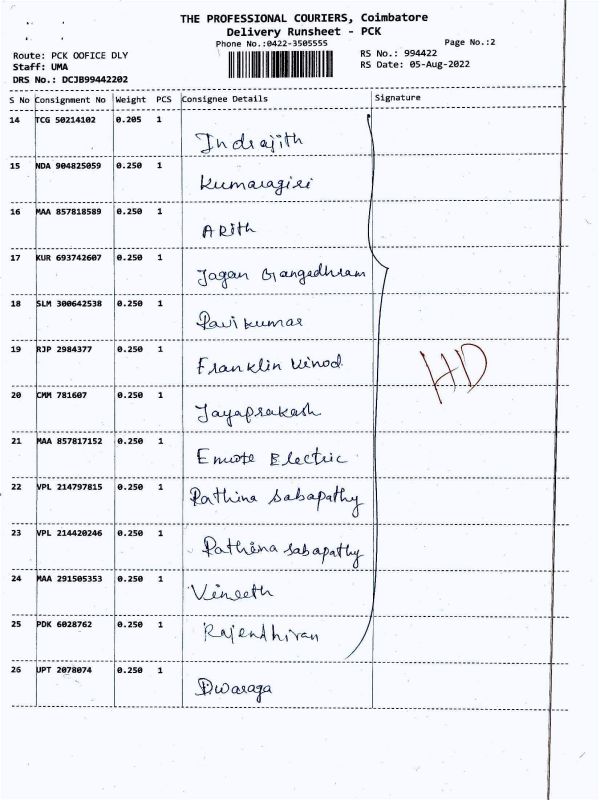 THE PROFESSIONAL COURIERS, Coimbatore
Delivery Runsheet - PCK
Phone No.:0422-3505555
Page No.:2
Route: PCK OOFICE DLY
RS No.: 994422
Staff: UMA
RS Date: 05-Aug-2022
DRS No.: DCJB99442202
S No Consignment No Weight PCS Consignee Details Signature
14 TCG 50214102 0.205 1
Indrajith
15 NDA 904825059 0.250 1
Kumaragiri
16 MAA 857818589 0.250 1
ARith
17 KUR 693742607 0.250 1
Jagan Gangadhram
18 SLM 300642538 0.250 1
Ravi kumar
19 RJP 2984377 0.250 1
Franklin Vinod
HD
20 CMM 781607 0.250 1
Jayaprakash
21 MAA 857817152 0.250 1
Emote Electric
22 VPL 214797815 0.250 1
Rathina Sabapathy
23 VPL 214420246 0.250 1
Rathena Sabapathy
24 MAA 291505353 0.250 1
Vineeth
25 PDK 6028762 0.250 1
Rajendhiran
26 UPT 2078074 0.250 1
Dwaraga